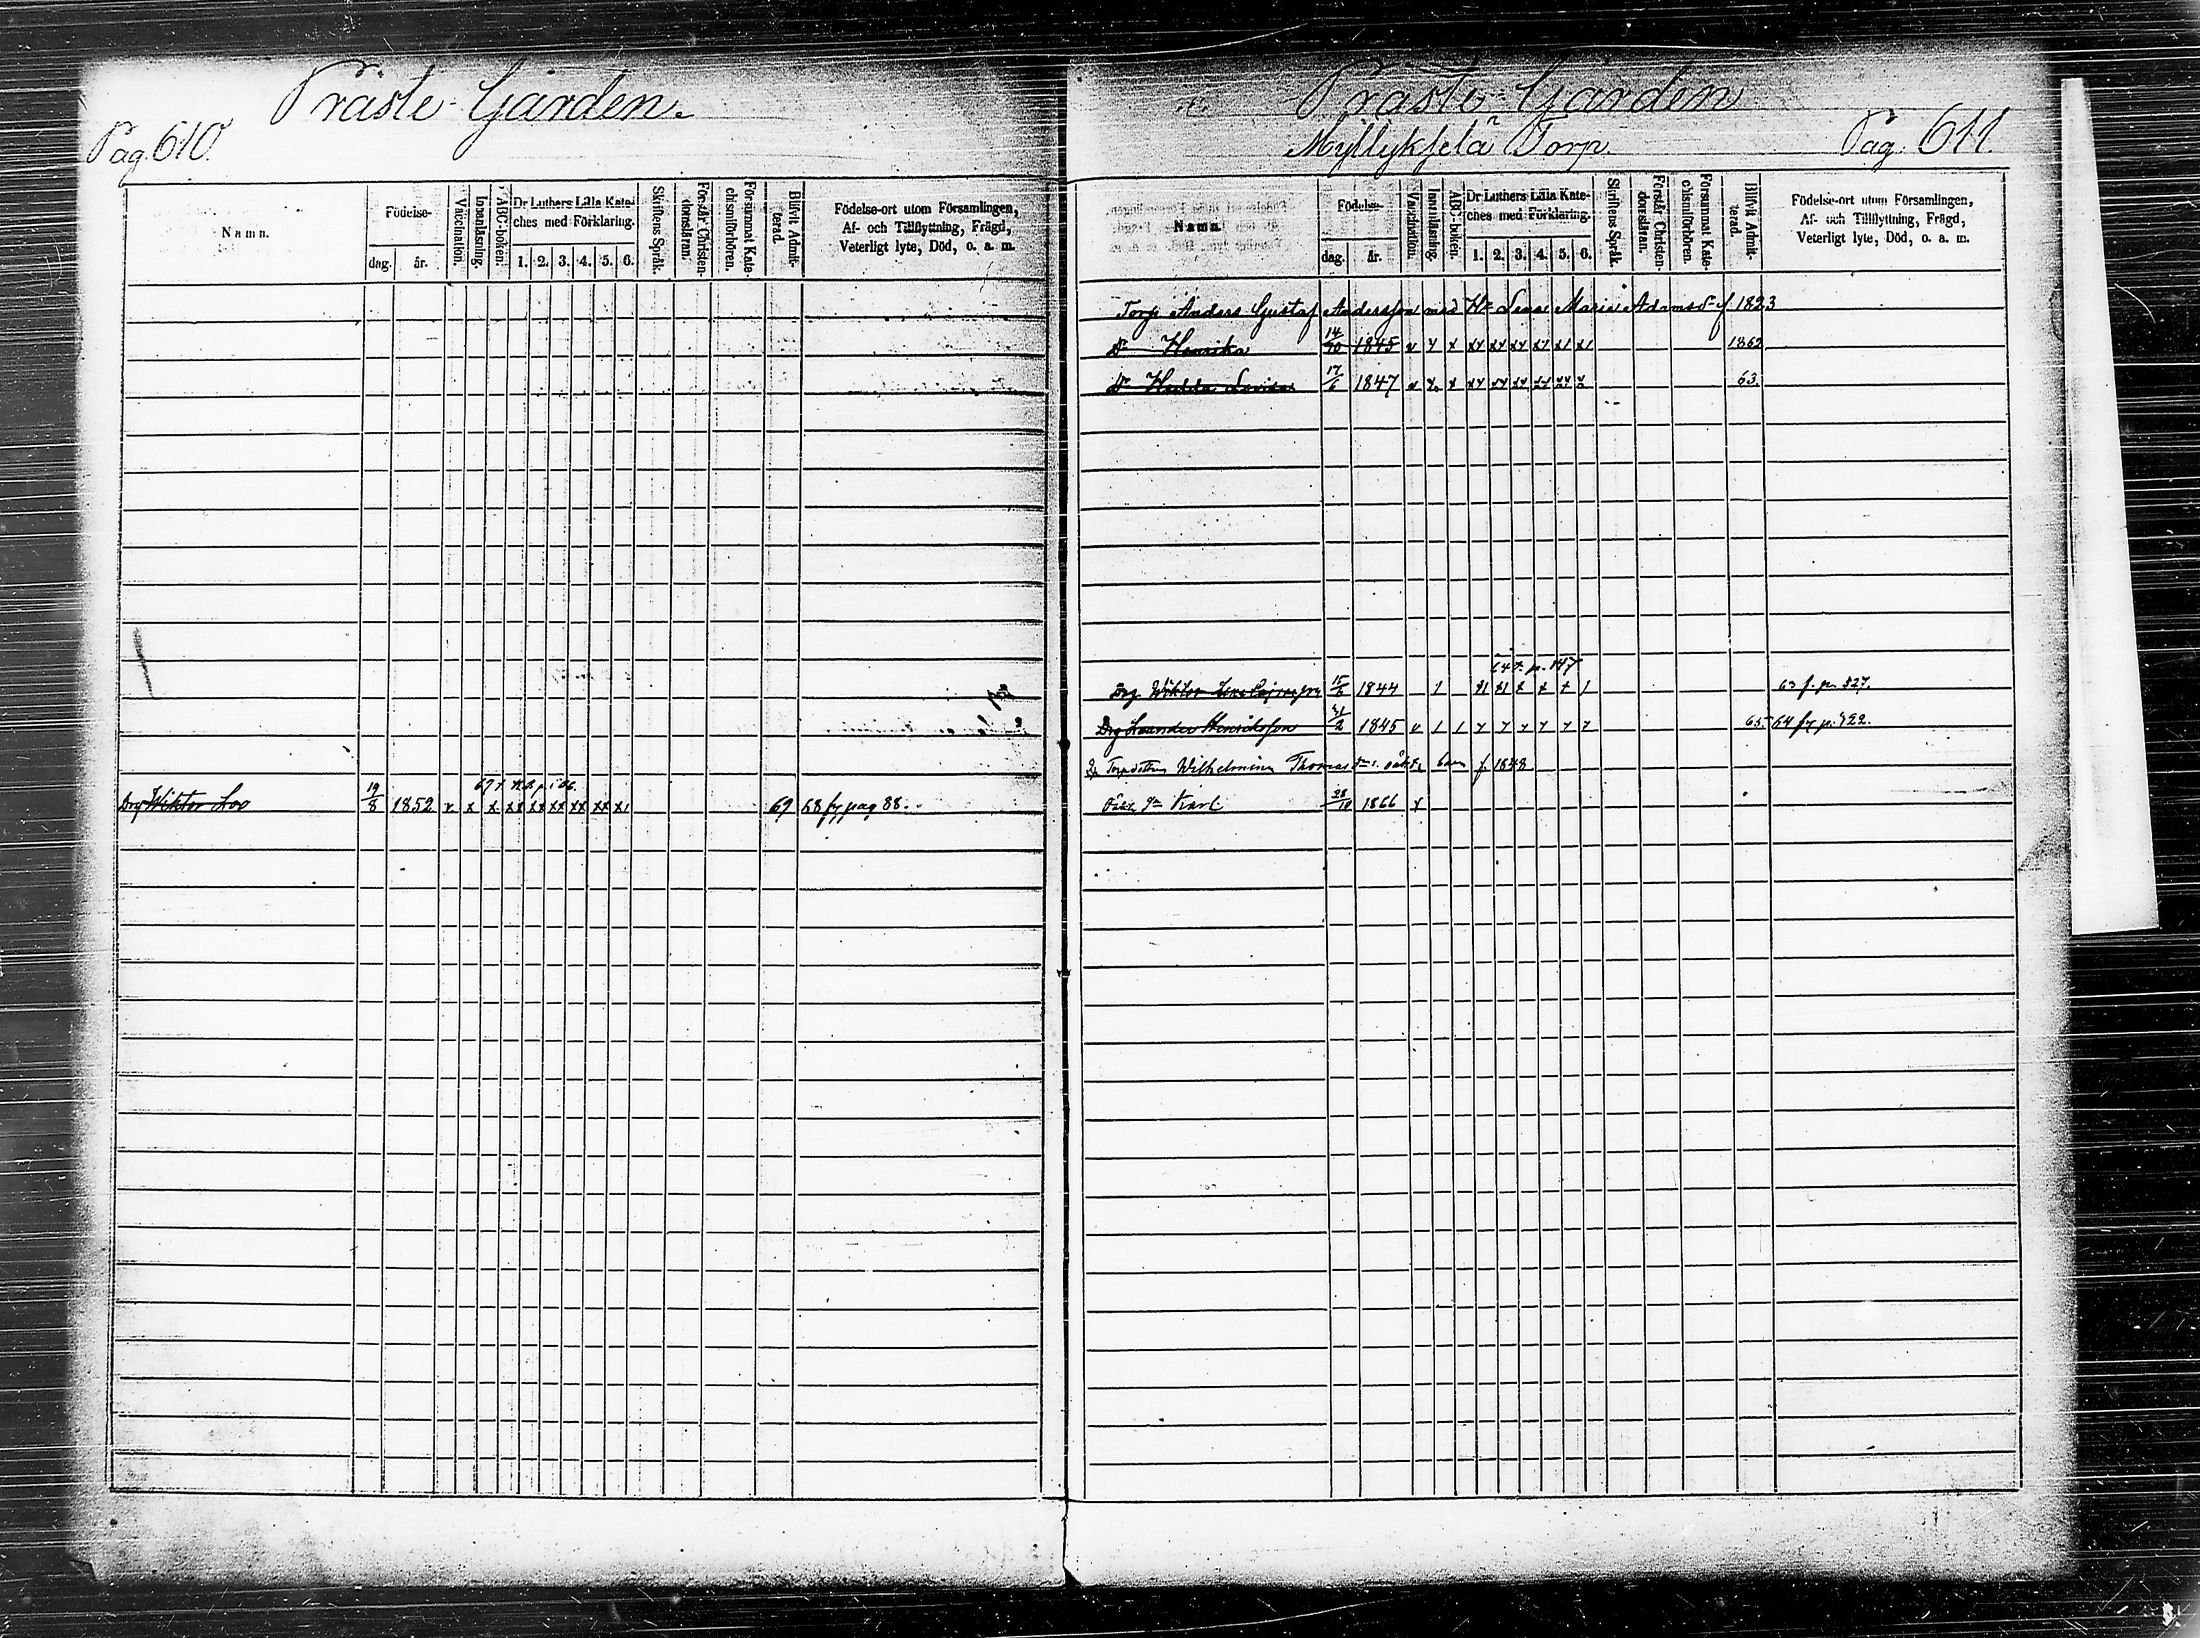 Präste-Gården.
Pag. 610.
Namn.
Födelse-
dag.
år.
Vaccination.
Innanläsning.
ABC-boken.
Dr Luthers Lilla Kate-
ches med Förklaring.
1. 2. 3. 4. 5. 6.
Skriftens Språk.
Förstår Christen-
domsläran.
Försummat Kate-
chismiförhören.
Blifvit Admit-
terad.
Födelse-ort utom Församlingen,
Af- och Tillflyttning, Frägd,
Veterligt lyte, Död, o. a. m.
Drg Wiktor Loo 19/8 1852 x x x xx xx xx xx xx x1 69 68 fr pag 88.
Präste-Gården
Myllykselä Torp.
Pag. 611.
Namn.
Födelse-
dag.
år.
Vaccination.
Innanläsning.
ABC-boken.
Dr Luthers Lilla Kate-
ches med Förklaring.
1. 2. 3. 4. 5. 6.
Skriftens Språk.
Förstår Christen-
domsläran.
Försummat Kate-
chismiförhören.
Blifvit Admit-
terad.
Födelse-ort utom Församlingen,
Af- och Tillflyttning, Frägd,
Veterligt lyte, Död, o. a. m.
Torp Anders Gustaf Andersson med H. Lena Maria Adamsd f 1823
Dr Henrika 14/10 1845 1862
Dr Hedda Lovisa 17/6 1847 63.
64 t. p. 147
Drg Wiktor 1844 63 f. p. 527.
Drg Leander Henriksson 1845 65 64 fr p. 522.
Torpdottren Wilhelmina Thomas dr f. 1848
sn Karl 28/10 1866 x